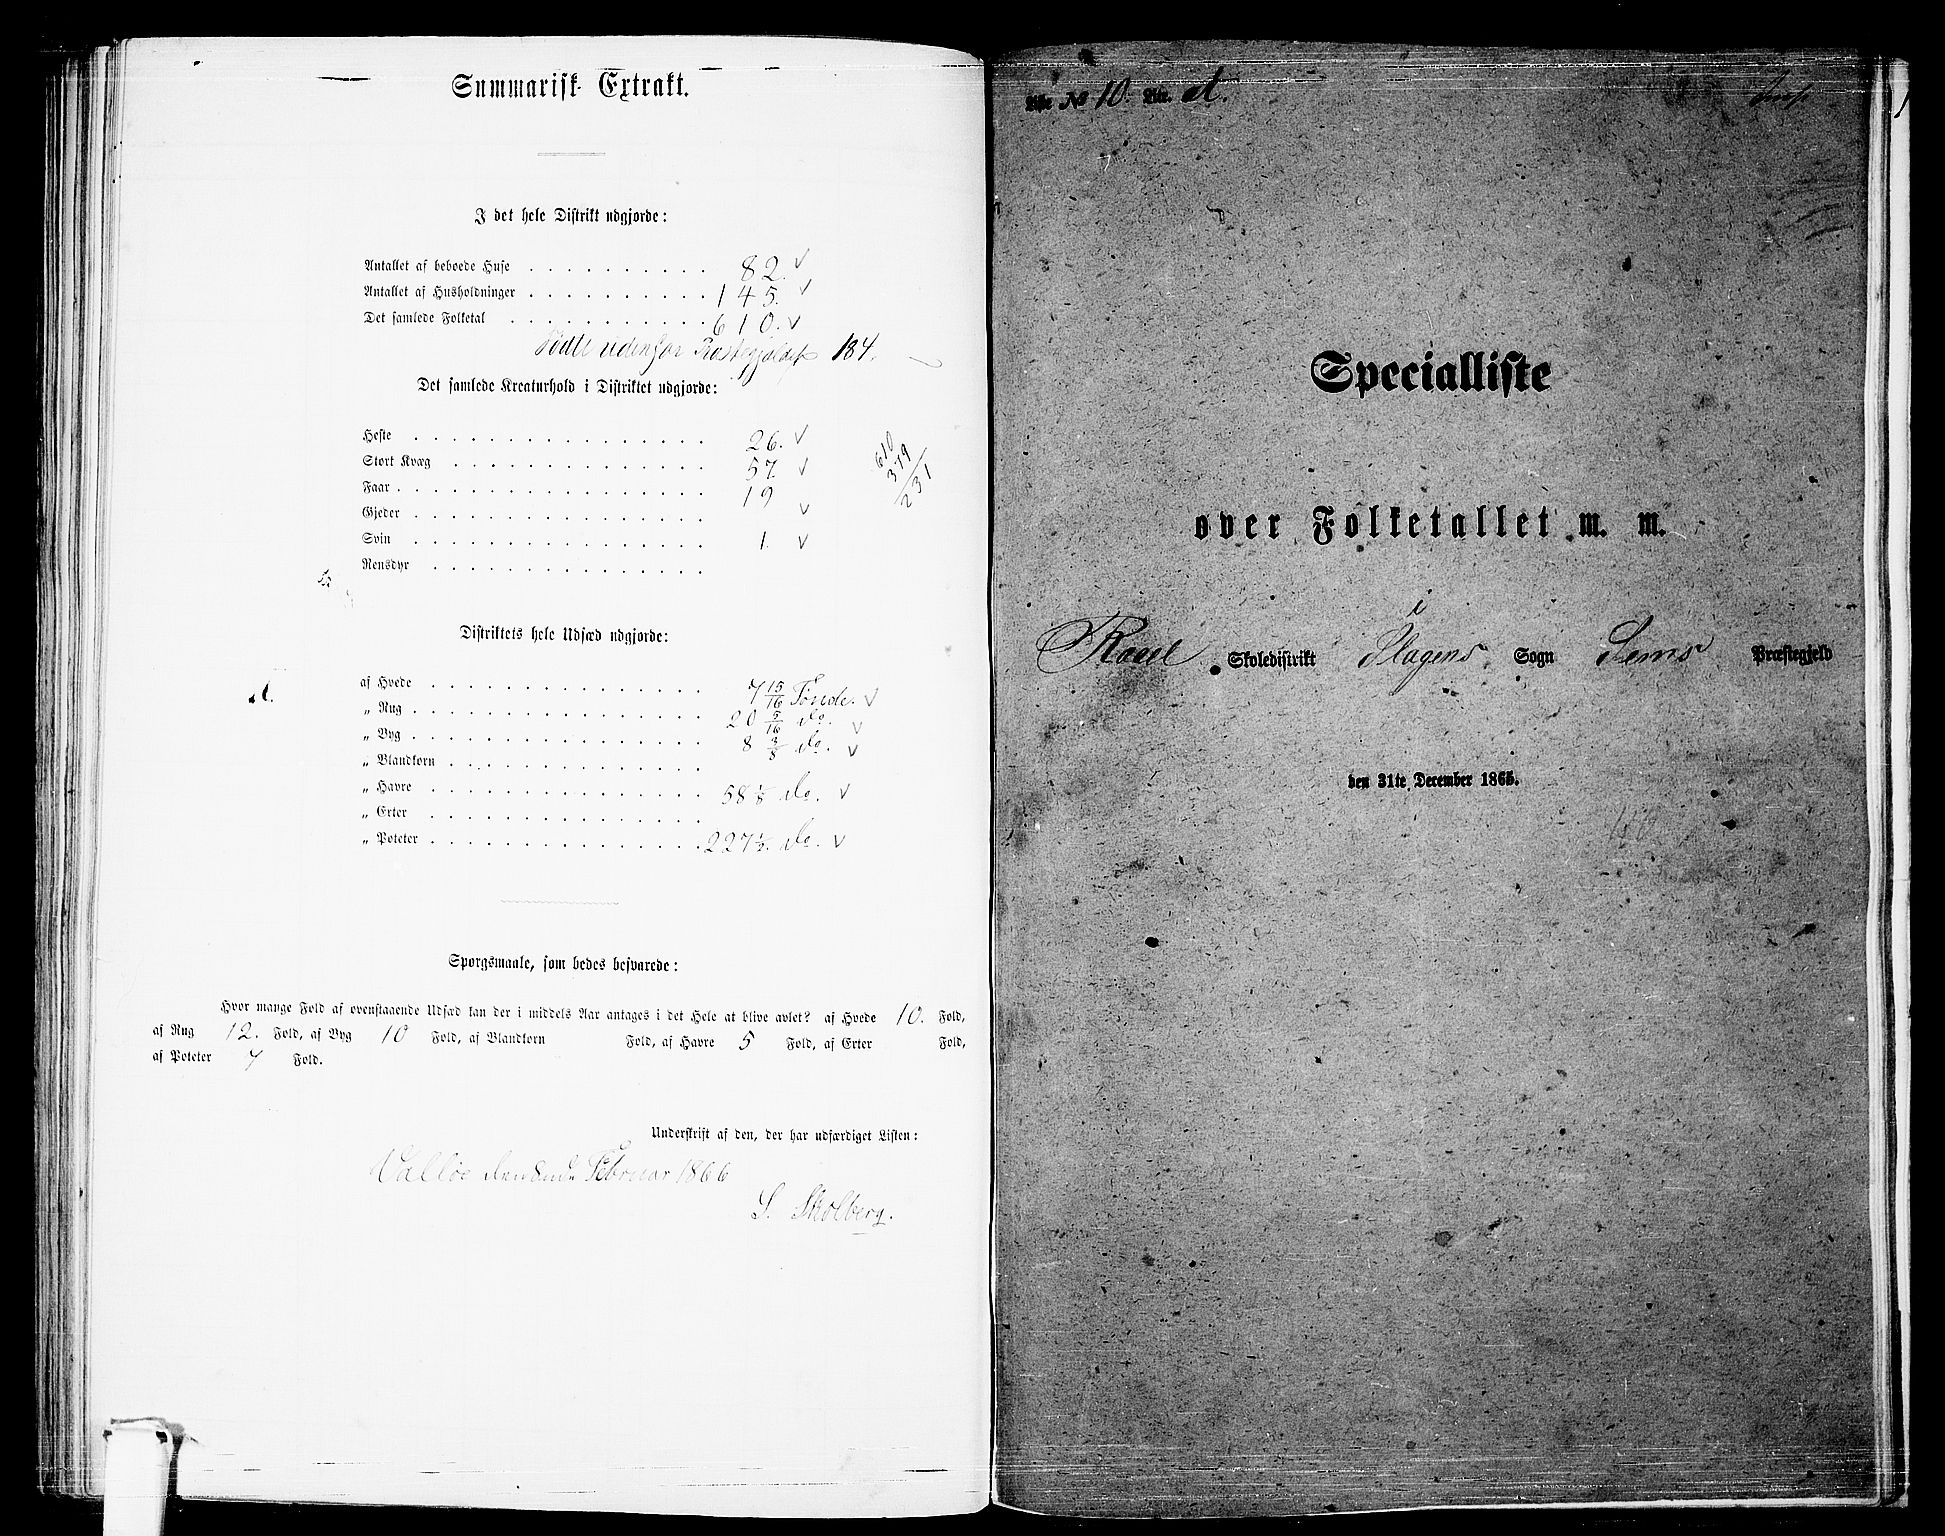 Summarisk Extrakt.
I det hele Distrikt udgjorde:
Antallet af beboede Huse . . . . . . . . . . 82.
Antallet af Husholdninger . . . . . . . . . . 145.
Det samlede Folketal . . . . . . . . . . . 610.
Fødte udenfor Præstegjeldet 184.
Det samlede Kreaturhold i Distriktet udgjorde:
Heste . . . . . . . . . . . . . . . . . 26.
Stort Kvæg . . . . . . . . . . . . . . 57.
Faar . . . . . . . . . . . . . . . . . . 19
Gjeder . . . . . . . . . . . . . . . . .
Svin . . . . . . . . . . . . . . . . . 1.
Rensdyr . . . . . . . . . . . . . . . .
610
379
231
Distriktets hele Udsæd udgjorde:
af Hvede . . . . . . . . . . . . . . . . 7 15/16 Tønde.
„ Rug . . . . . . . . . . . . . . . . . 20 5/16 do.
„ Byg . . . . . . . . . . . . . . . . . 8 3/8 do.
„ Blandkorn . . . . . . . . . . . . . . .
„ Havre . . . . . . . . . . . . . . . . 58 1/8 do.
„ Erter . . . . . . . . . . . . . . . .
„ Poteter . . . . . . . . . . . . . . . . 227 1/2. do.
Spørgsmaale, som bedes besvarede:
Hvor mange Fold af ovenstaaende Udsæd kan der i middels Aar antages i det Hele at blive avlet? af Hvede 10. Fold,
af Rug 12. Fold, af Byg 10 Fold, af Blandkorn Fold, af Havre 5 Fold, af Erter Fold,
af Poteter 7 Fold.
Underskrift af den, der har udfærdiget Listen:
Valløe den Februar 1866
S. Skolberg.
Liste No 10. Litr. A.
Specialliste
over Folketallet m. m.
i
Roael Skoledistrikt Slagens Sogn Sems Præstegjeld
den 31te December 1865.